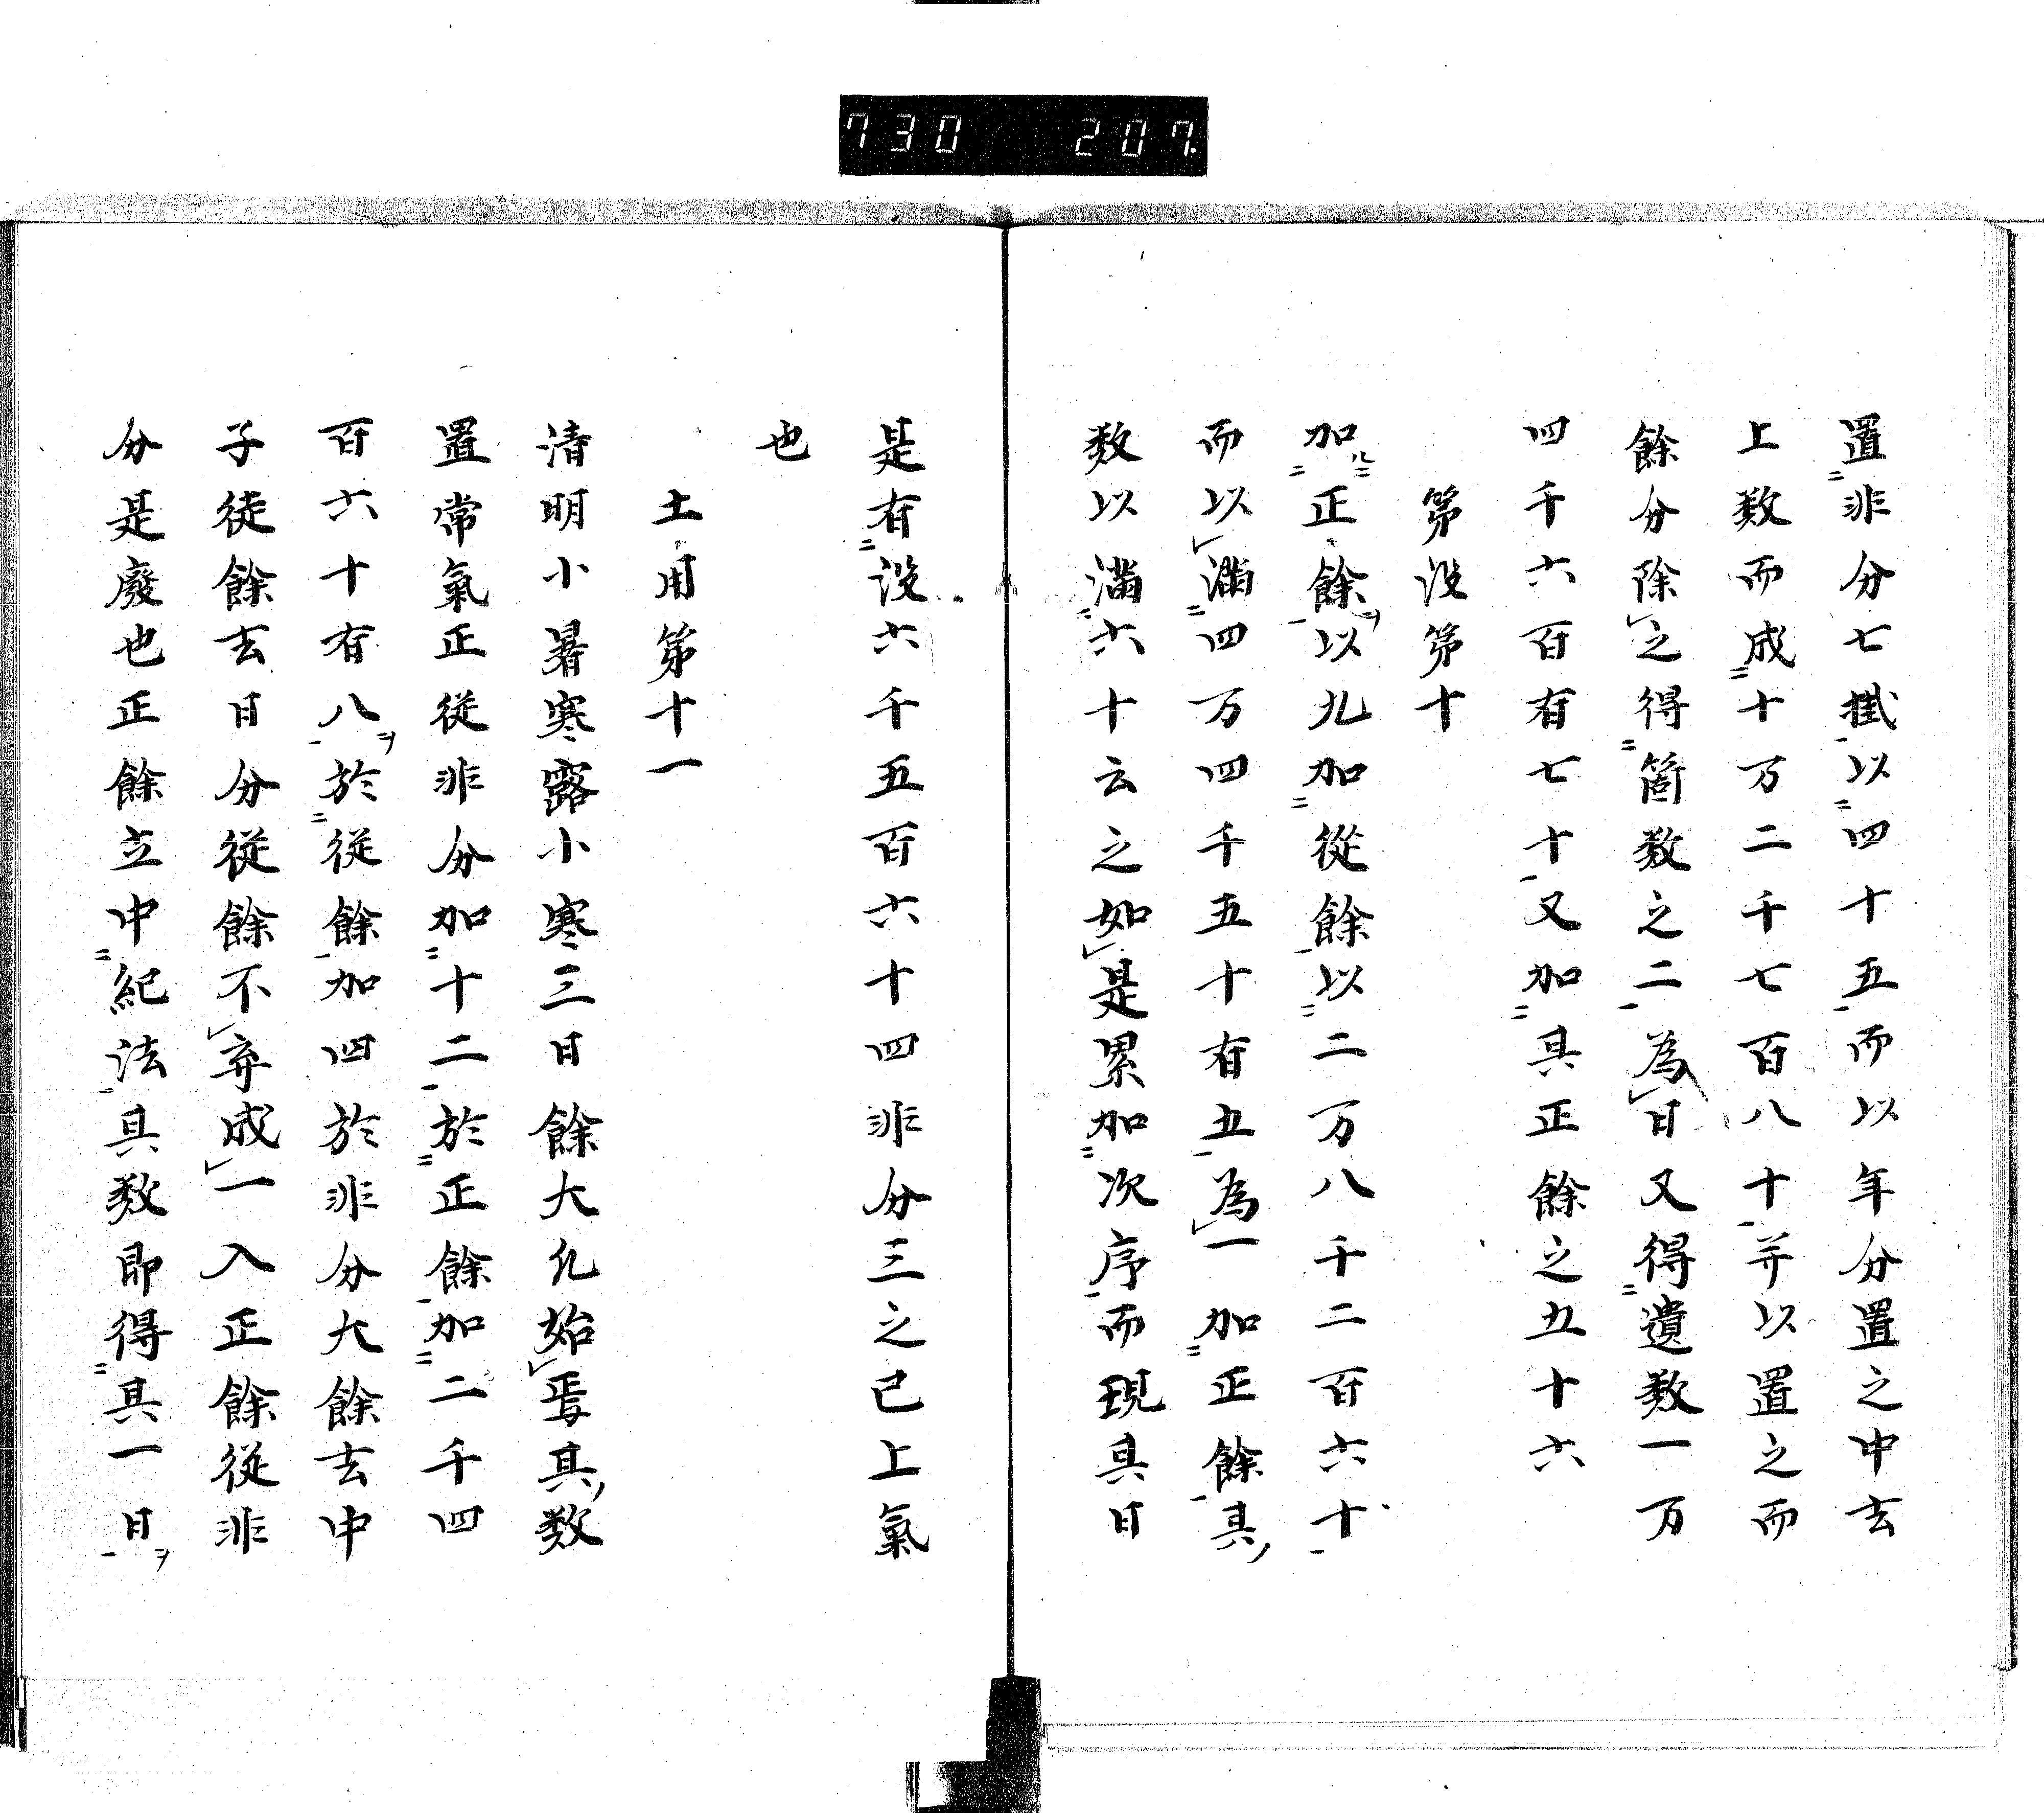 730 207.
置非分七掛以四十五而以年分置之中去
上数而成十万二千七百八十并以置之而
餘分除之得箇数之二為日又得遺数一万
四千六百有七十又加其正餘之五十六
第没第十
加正餘以九加從餘以二万八千二百六十
而以満四万四千五十有五為一加正餘其
数以満六十云之如是累加次序而現其日
是有没六千五百六十四非分三之已上氣
也
土用第十一
清明小暑寒露小寒三日餘大化始焉其数
置常氣正従非分加十二於正餘加二千四
百六十有八於従餘加四於非分大餘去中
子従餘去日分従餘不弃成一入正餘従非
分是廢也正餘立中紀法具数即得其一日